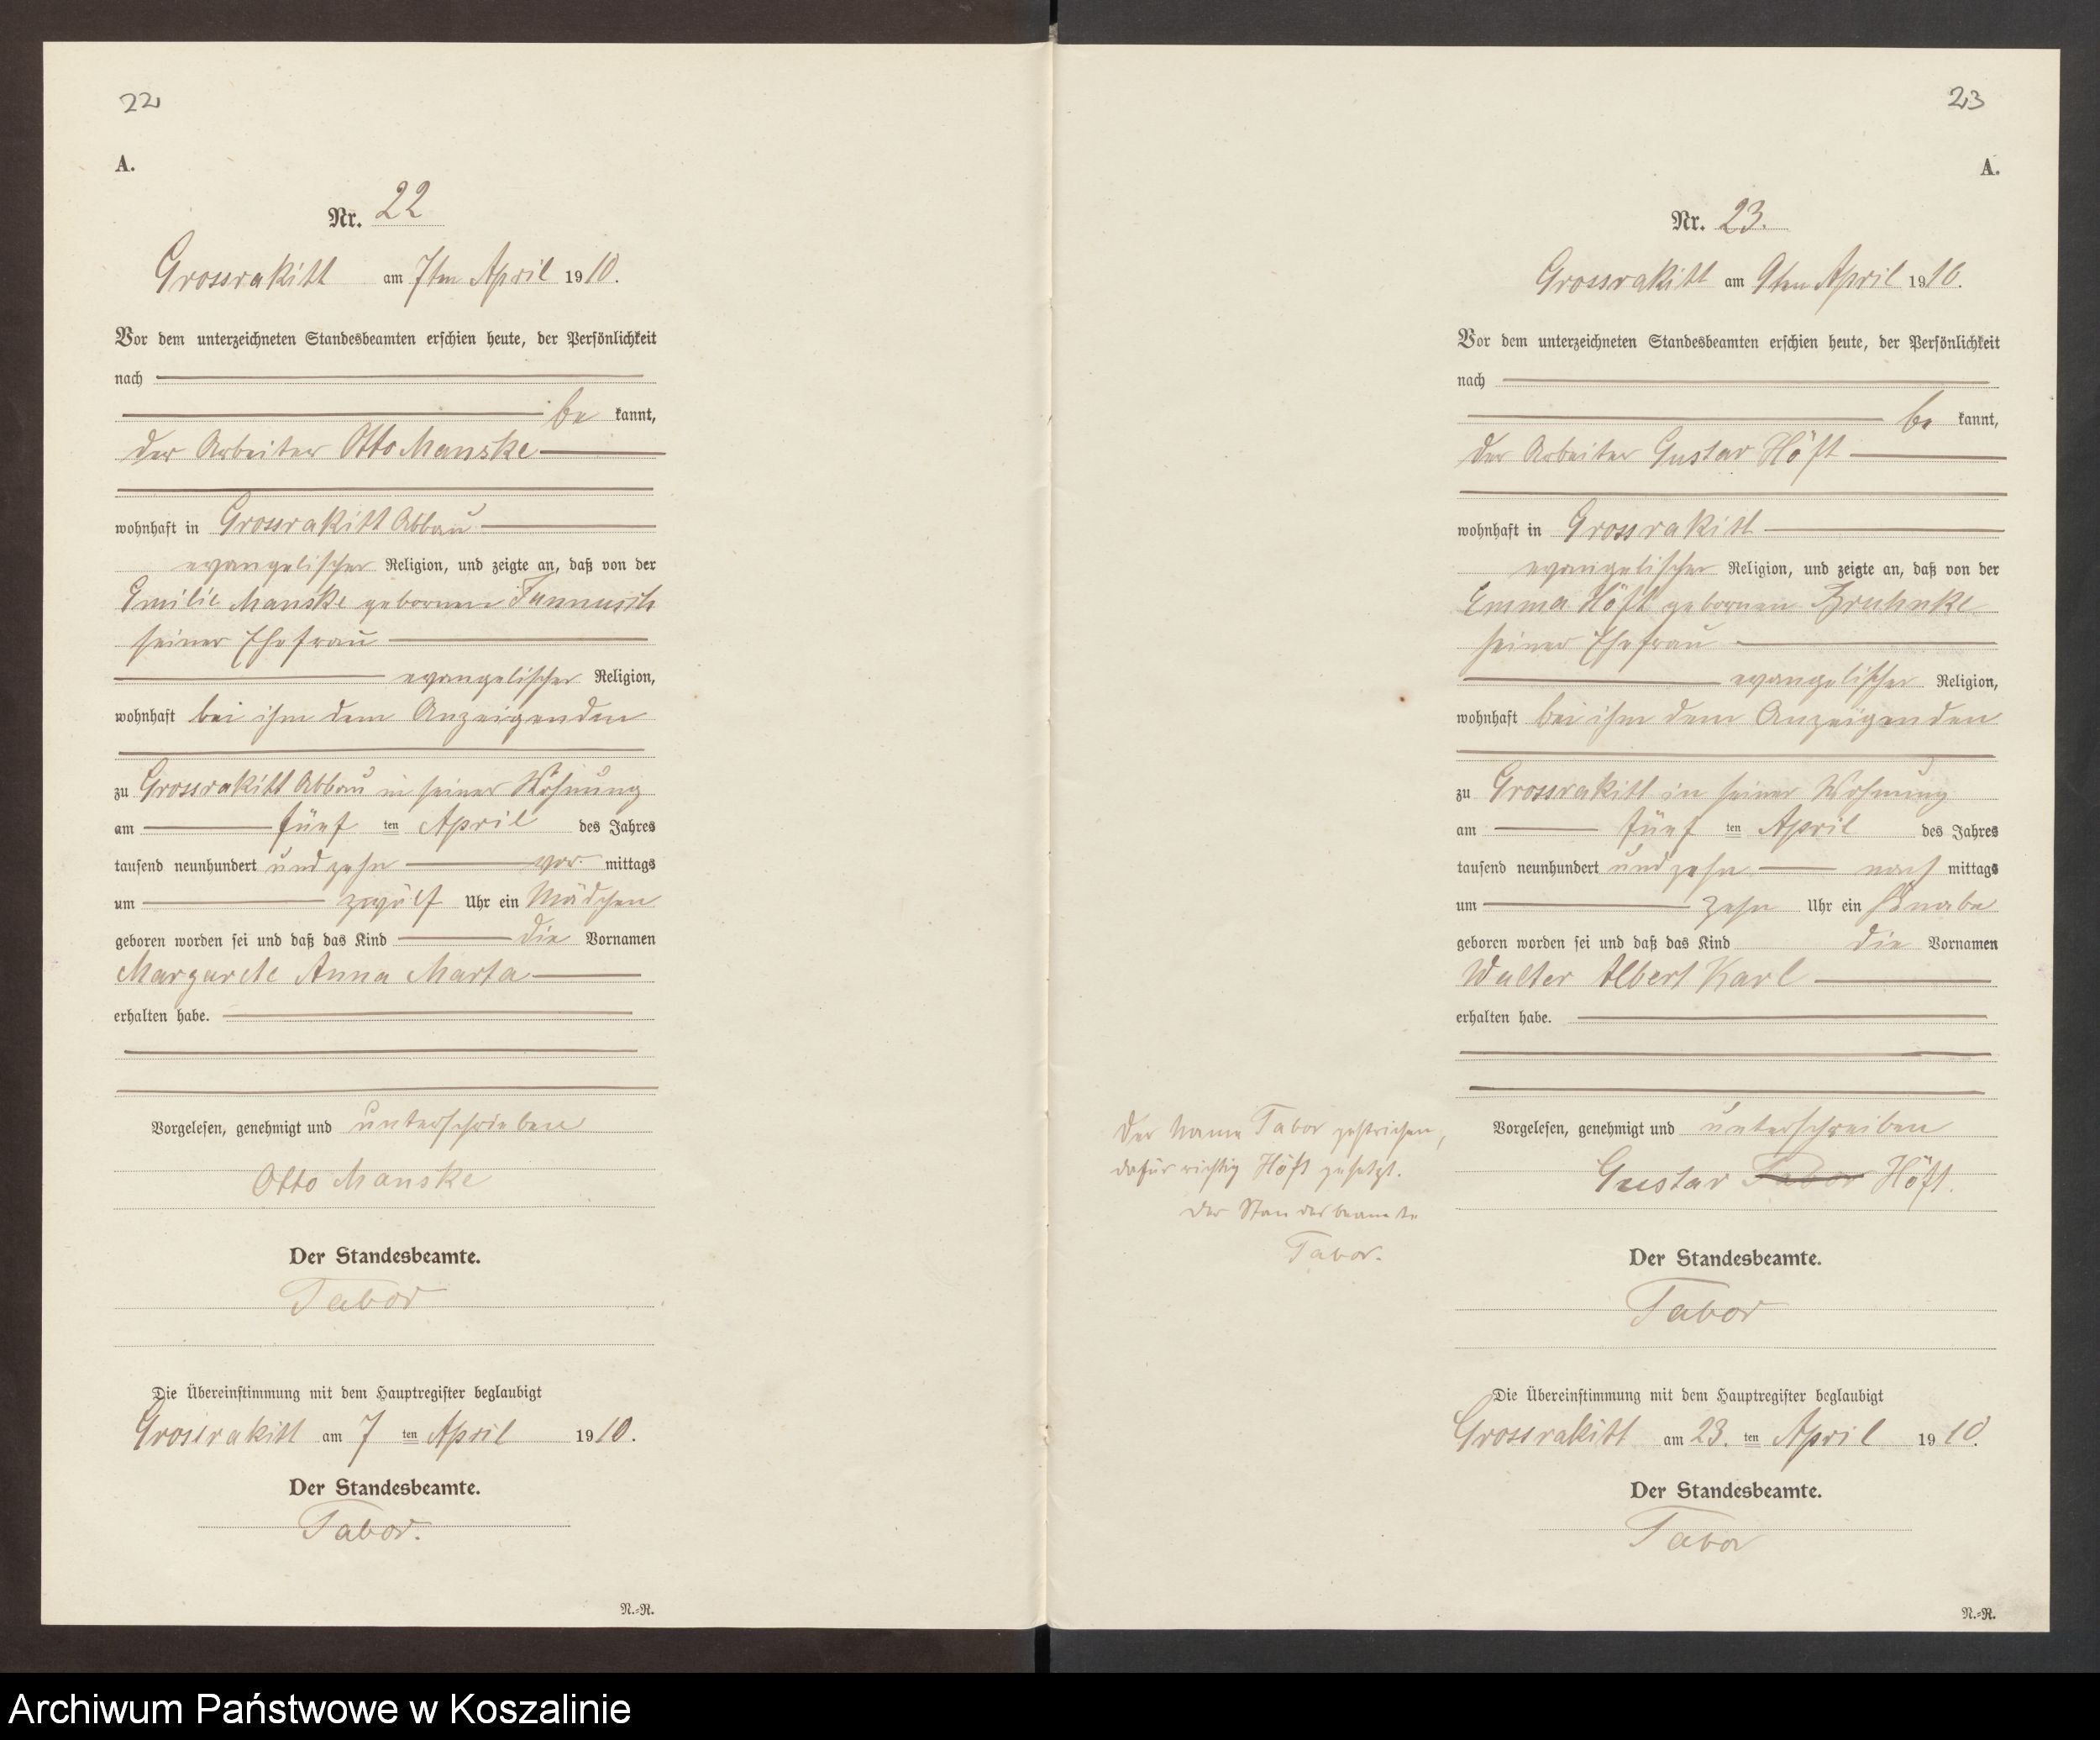 22
A.
Nr. 22
Grossrakitt am 7ten April 1910.
Vor dem unterzeichneten Standesbeamten erschien heute, der Persönlichkeit
nach
be kannt,
der Arbeiter Otto Manske
wohnhaft in Grossrakitt Abbau
evangelischer Religion, und zeigte an, daß von der
Emilie Manske geborenen
seiner Ehefrau
evangelischer Religion,
wohnhaft bei ihm dem Anzeigenden
zu Grossrakitt Abbau in seiner Wohnung
am fünf ten April des Jahres
tausend neunhundert und zehn vor mittags
um zwölf Uhr ein Mädchen
geboren worden sei und daß das Kind die Vornamen
Margarete Anna Marta
erhalten habe.
Vorgelesen, genehmigt und unterschrieben
Otto Manske
Der Standesbeamte.
Tabor
Die Übereinstimmung mit dem Hauptregister beglaubigt
Grossrakitt am 7 ten April 1910.
Der Standesbeamte.
Tabor.
N.=R.
23
A.
Nr. 23.
Grossrakitt am 9ten April 1910.
Vor dem unterzeichneten Standesbeamten erschien heute, der Persönlichkeit
nach
be kannt,
der Arbeiter Gustav Höft
wohnhaft in Grossrakitt
evangelischer Religion, und zeigte an, daß von der
Emma Höft geborenen
seiner Ehefrau
evangelischer Religion,
wohnhaft bei ihm dem Anzeigenden
zu Grossrakitt in seiner Wohnung
am fünf ten April des Jahres
tausend neunhundert und zehn nach mittags
um zehn Uhr ein Knabe
geboren worden sei und daß das Kind die Vornamen
Walter Albert Karl
erhalten habe.
Vorgelesen, genehmigt und unterschreiben
Gustav Tabor Höft.
Der Name Tabor gestrichen,
dafür richtig Höft gesetzt.
Der Standesbeamte
Tabor.
Der Standesbeamte.
Tabor
Die Übereinstimmung mit dem Hauptregister beglaubigt
Grossrakitt am 23. ten April 1910.
Der Standesbeamte.
Tabor
N.=R.
Archiwum Państwowe w Koszalinie